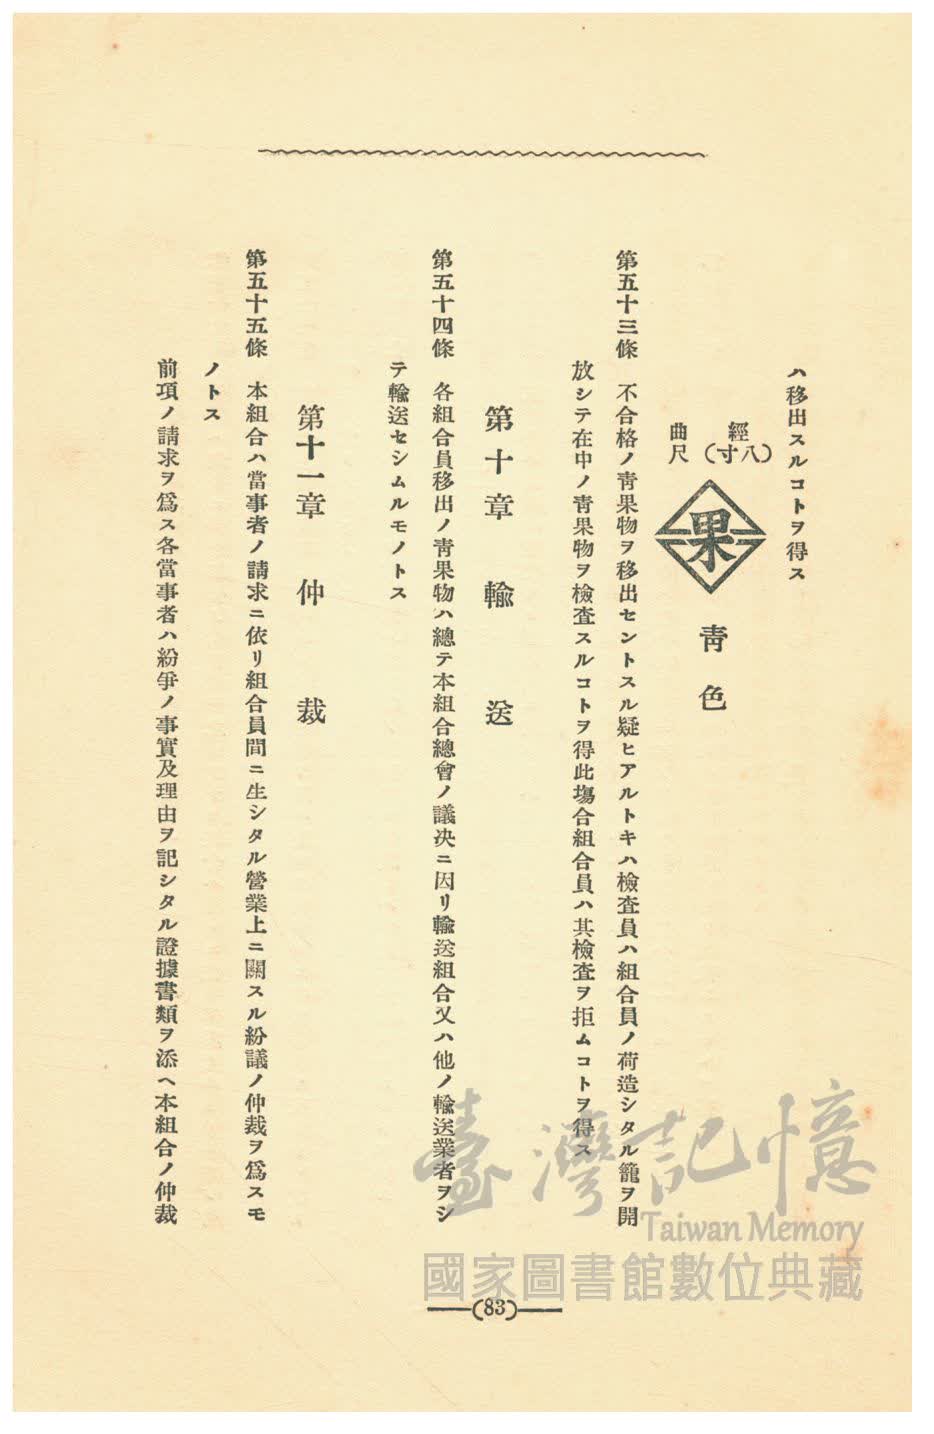 ハ移出スルコトヲ得ス
經
（八寸）
曲尺
果
靑色
第五十三條　不合格ノ靑果物ヲ移出セントスル疑ヒアルトキハ檢査員ハ組合員ノ荷造シタル籠ヲ開
放シテ在中ノ靑果物ヲ檢査スルコトヲ得此塲合組合員ハ其檢査ヲ拒ムコトヲ得ス
第十章　輸　送
第五十四條　各組合員移出ノ靑果物ハ總テ本組合總會ノ議决ニ因リ輸送組合又ハ他ノ輸送業者ヲシ
テ輸送セシムルモノトス
第十一章　仲　裁
第五十五條　本組合ハ當事者ノ請求ニ依リ組合員間ニ生シタル營業上ニ關スル紛議ノ仲裁ヲ爲スモ
ノトス
前項ノ請求ヲ爲ス各當事者ハ紛爭ノ事實及理由ヲ記シタル證據書類ヲ添ヘ本組合ノ仲裁
臺灣記憶
Taiwan Memory
國家圖書館數位典藏
(83)